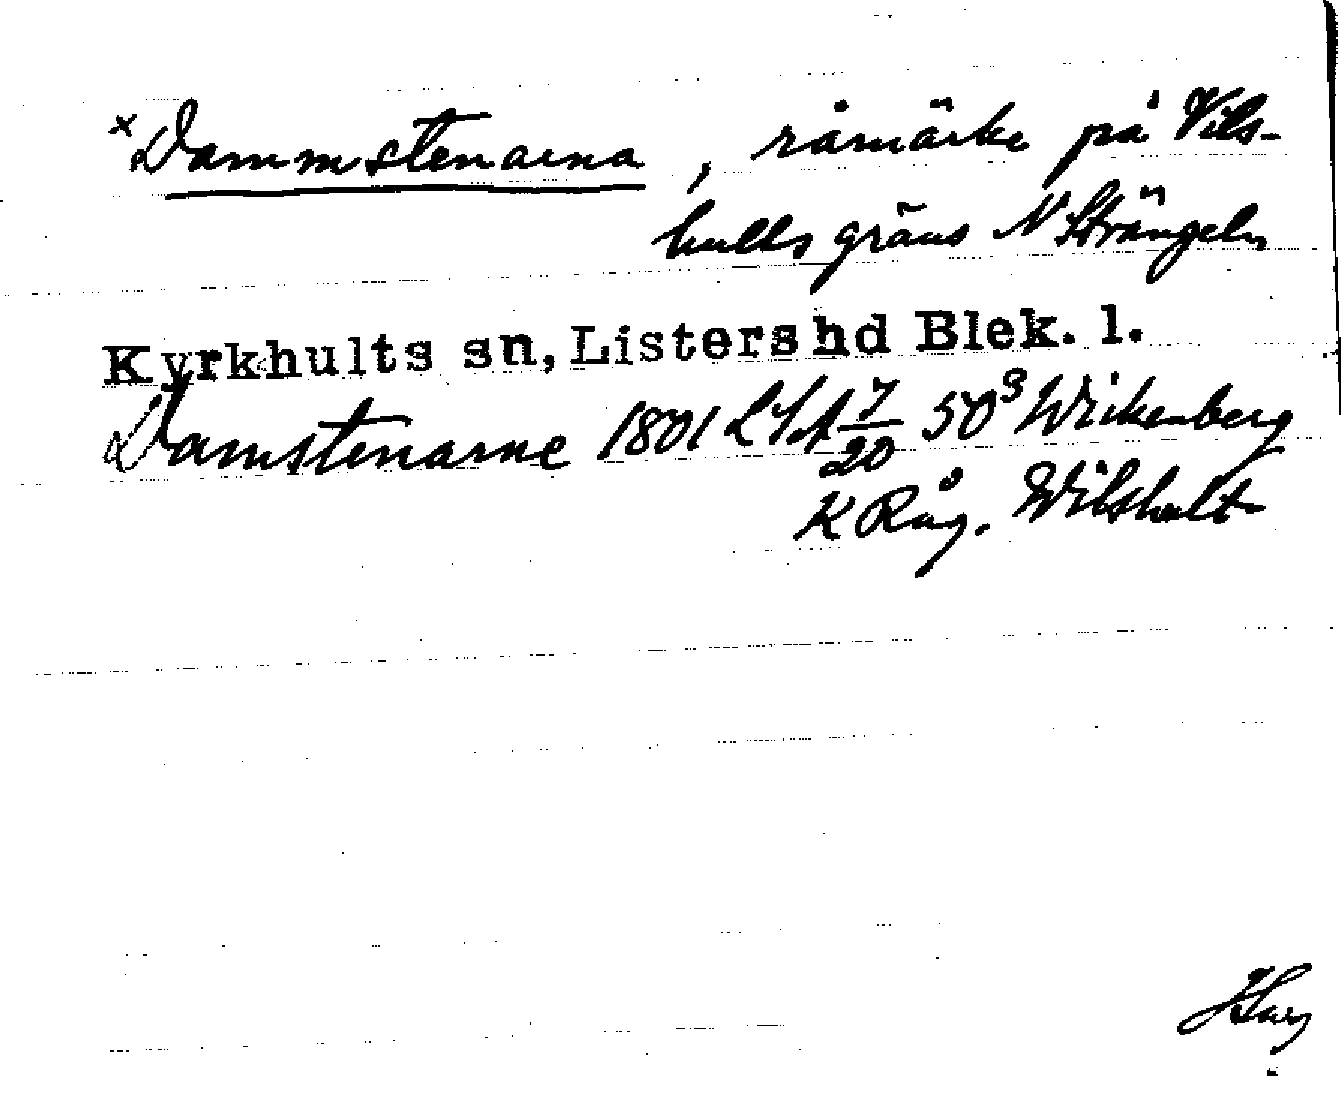 × Dammstenarna, råmärke på Vils-
hults gräns N Strängeln
Kyrkhults sn, Listers hd Blek. l.
Damstenarne 1801 LSA 7/20 50³ Wickenberg
K Råg. Wilshult